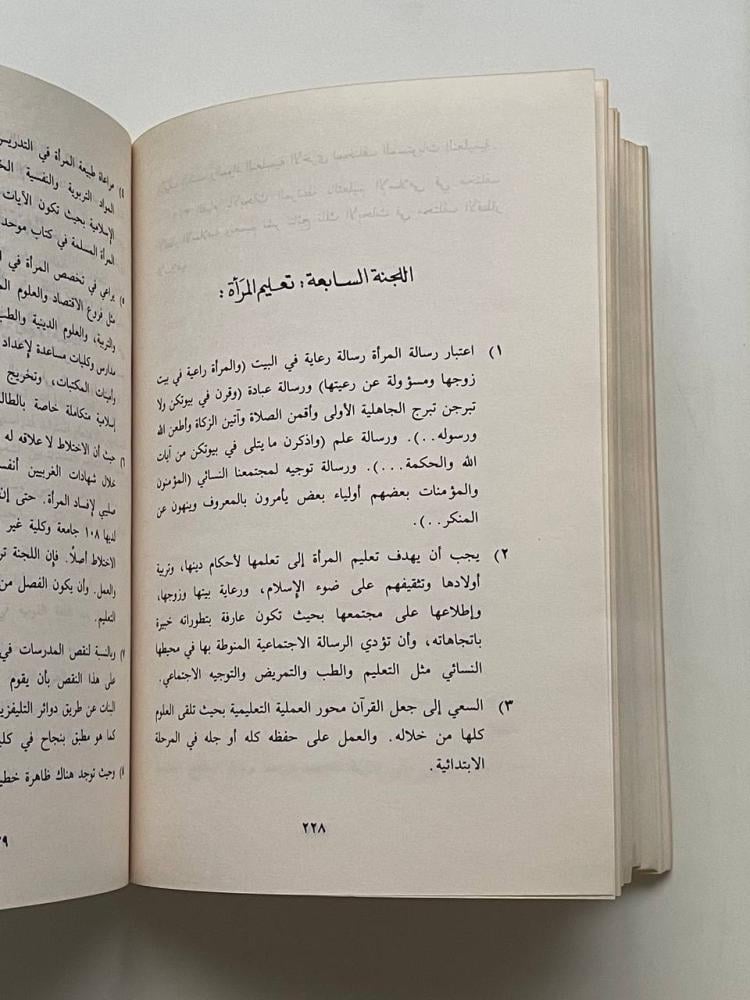 اللجنة السابعة: تعليم المرأة:
١) اعتبار رسالة المرأة رسالة رعاية في البيت (والمرأة راعية في بيت
زوجها ومسؤولة عن رعيتها) ورسالة عبادة (وقرن في بيوتكن ولا
تبرجن تبرج الجاهلية الأولى وأقمن الصلاة وآتين الزكاة وأطعن الله
ورسوله..). ورسالة علم (واذكرن ما يتلى في بيوتكن من آيات
الله والحكمة...). ورسالة توجيه لمجتمعنا النسائي (المؤمنون
والمؤمنات بعضهم أولياء بعض يأمرون بالمعروف وينهون عن
المنكر..).
٢) يجب أن يهدف تعليم المرأة إلى تعلمها لأحكام دينها، وتربية
أولادها وتثقيفهم على ضوء الإسلام، ورعاية بيتها وزوجها،
وإطلاعها على مجتمعها بحيث تكون عارفة بتطوراته خبيرة
باتجاهاته، وأن تؤدي الرسالة الاجتماعية المنوطة بها في محيطها
النسائي مثل التعليم والطب والتمريض والتوجيه الاجتماعي.
٣) السعي إلى جعل القرآن محور العملية التعليمية بحيث تلقى العلوم
كلها من خلاله. والعمل على حفظه كله أو جله في المرحلة
الابتدائية.
٢٢٨
٤) مراعاة طبيعة المرأة في التدريس
المواد التربوية والنفسية
الإسلامية بحيث تكون الآيات
المرأة المسلمة في كتاب موحد
٥) يراعي في تخصص المرأة في
مثل فروع الاقتصاد والعلوم
والتربية، والعلوم الدينية والطب
مدارس وكليات مساعدة لإعداد
وأمينات المكتبات، وتخريج
إسلامية متكاملة خاصة بالطال
٦) حيث أن الاختلاط لا علاقه له
خلال شهادات الغربيين أنفس
صليبي لإفساد المرأة. حتى إن
لديها ١٠٨ جامعة وكلية غير
الاختلاط أصلًا. فإن اللجنة تر
والعمل. وأن يكون الفصل من
التعليم.
٧) وبالنسبة لنقص المدرسات في
على هذا النقص بأن يقوم
البنات عن طريق دوائر التليفزي
كما هو مطبق بنجاح في كلي
٨) وحيث توجد هناك ظاهرة خطي